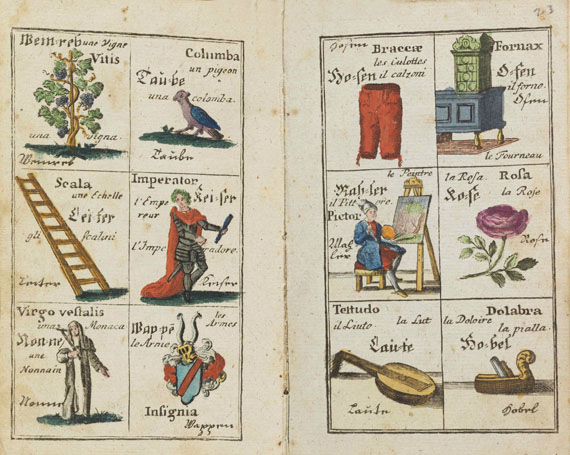 Wein-reb une Vigne
Vitis
una vigna.
Weinreb
Columba
un pigeon
Tau-be
una colomba.
Taube
Scala
une Echelle
Lei-ter
gli Scalini
Leiter
Imperator
Kei-ser
l'Empe reur
l'Impe radore.
Keiser
Virgo vestalis
una Monaca
Non-ne
une
Nonnain
Nonne
les
Wap-pē Armes
le Armie
Insignia
Wappen
2.3
Hosen Braccæ
les Culottes
Ho-sen il calzoni
Fornax
O-fen
il forno.
Ofen
le Fourneau
le Peintre
Mah-ler
il Pitt ore.
Pictor
Mah
ler
la Rosa. Rosa
Ro-se la Rose
Rose
Testudo
il Liuto la Lut
Lau-te
Laute
Dolabra
la Doloire
la pialla.
Ho-bel
Hobel